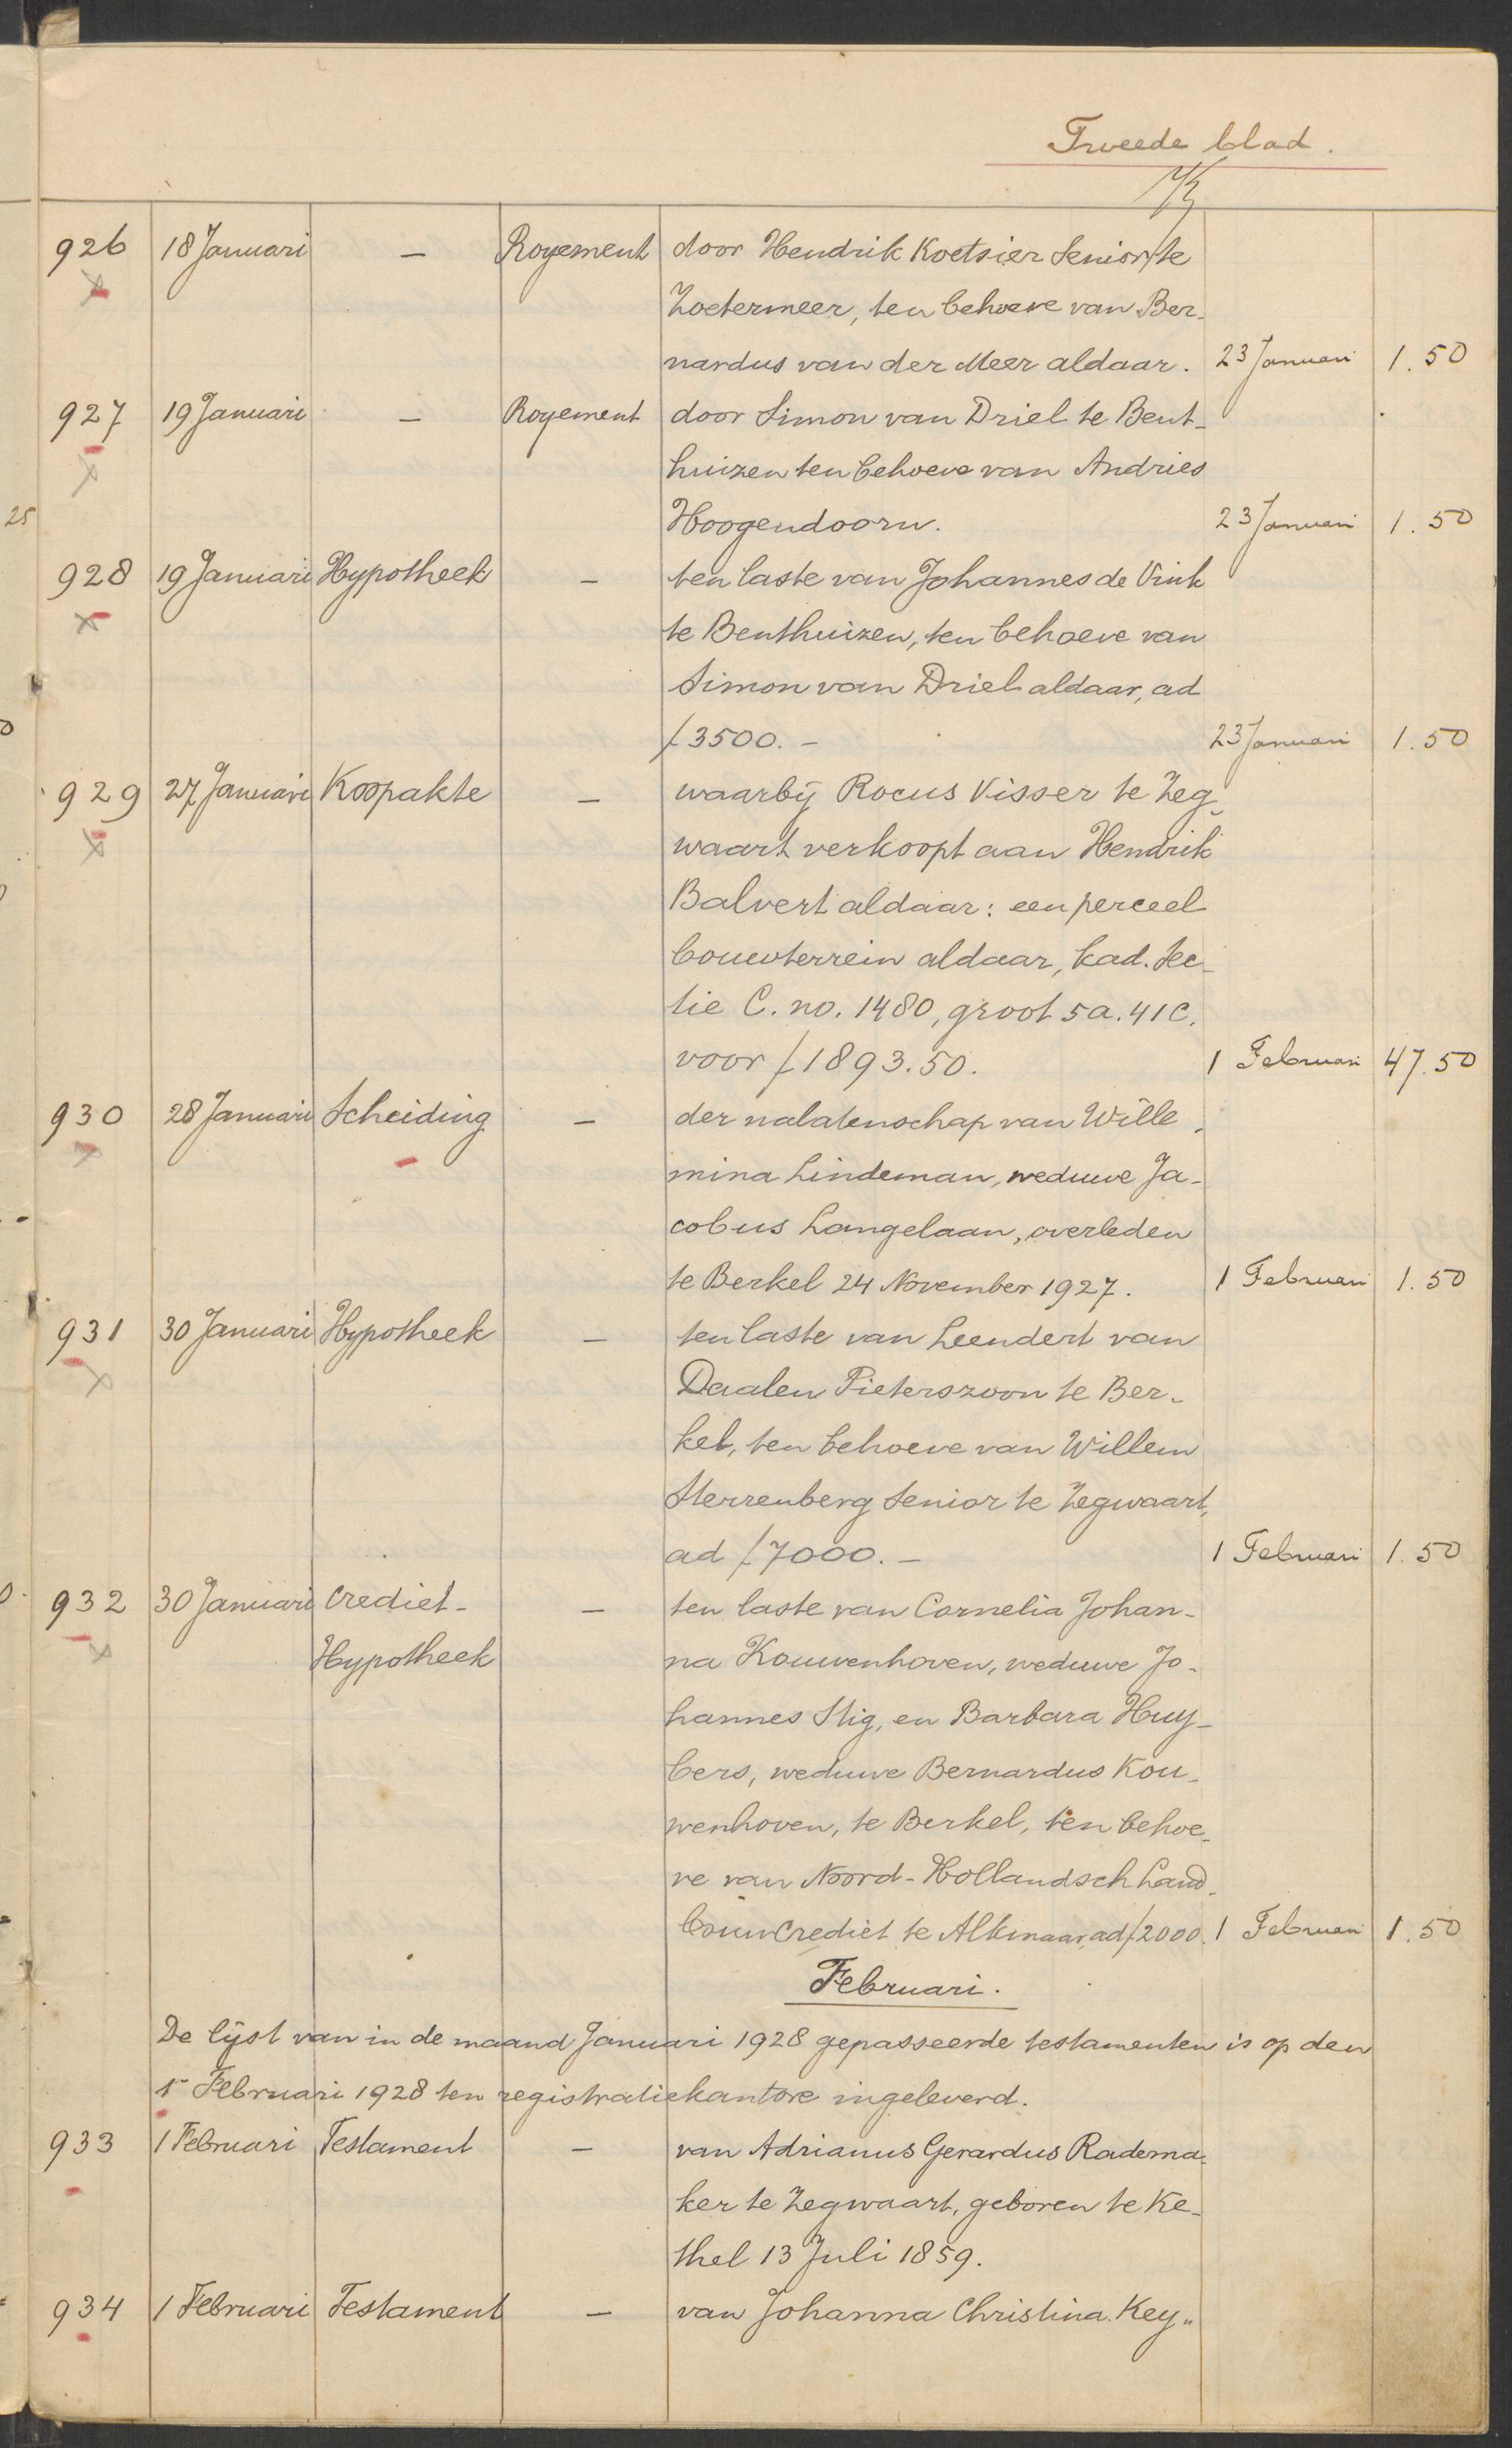 Tweede blad.
926 18 Januari — Royement door Hendrik Koetsier Senior te
Zoetermeer, ten behoeve van Ber-
nardus van der Meer aldaar. 23 Januari 1.50
927 19 Januari — Royement door Simon van Driel te Bent-
huizen ten behoeve van Andries
25
Hoogendoorn. 23 Januari 1.50
928 19 Januari Hypotheek — ten laste van Johannes de Vink
te Benthuizen, ten behoeve van
Simon van Driel aldaar, ad
ƒ3500.- 23 Januari 1.50
929 27 Januari Koopakte — waarbij Rocus Visser te Zeg-
waart verkoopt aan Hendrik
Balvert aldaar: een perceel
bouwterrein aldaar, kad. Sec-
tie C. no. 1480, groot 5a. 41c.
voor ƒ1893.50. 1 Februari 47.50
930 28 Januari Scheiding — der nalatenschap van Wille-
mina Lindeman, weduwe Ja-
cobus Langelaan, overleden
te Berkel 24 November 1927. 1 Februari 1.50
931 30 Januari Hypotheek — ten laste van Leendert van
Daalen Pieterszoon te Ber-
kel, ten behoeve van Willem
Sterrenberg Senior te Zegwaart,
ad ƒ7000.- 1 Februari 1.50
932 30 Januari Crediet- — ten laste van Cornelia Johan-
Hypotheek na Kouwenhoven, weduwe Jo-
hannes Slig, en Barbara Huy-
bers, weduwe Bernardus Kou-
wenhoven, te Berkel, ten behoe-
ve van Noord-Hollandsch Land-
bouwcrediet te Alkmaar, ad ƒ2000. 1 Februari 1.50
Februari.
De lijst van in de maand Januari 1928 gepasseerde testamenten is op den
1n Februari 1928 ten registratiekantore ingeleverd.
933 1 Februari Testament — van Adrianus Gerardus Radema-
ker te Zegwaart, geboren te Ke-
thel 13 Juli 1859.
934 1 Februari Testament — van Johanna Christina Key-